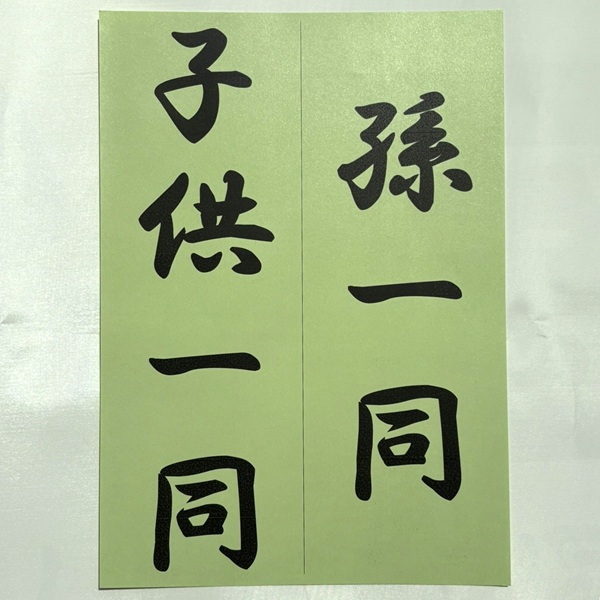 孫一同
子供一同